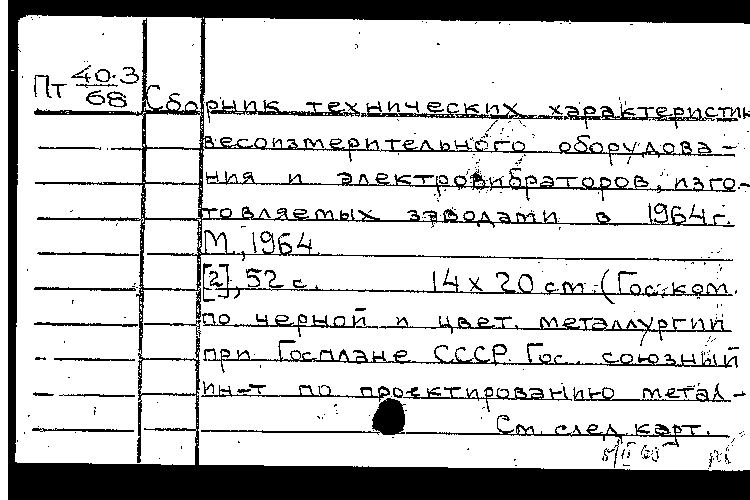 Пт 40.3
68
Сборник технических характеристик
весоизмерительного оборудова-
ния и электровибраторов, изго-
товляемых заводами в 1964 г.
М., 1964
[2], 52 с. 14 х 20 см. (Гос. ком.
по черной и цвет. металлургии
при Госплане СССР. Гос. союзный
ин-т по проектированию метал-
См. след. карт.